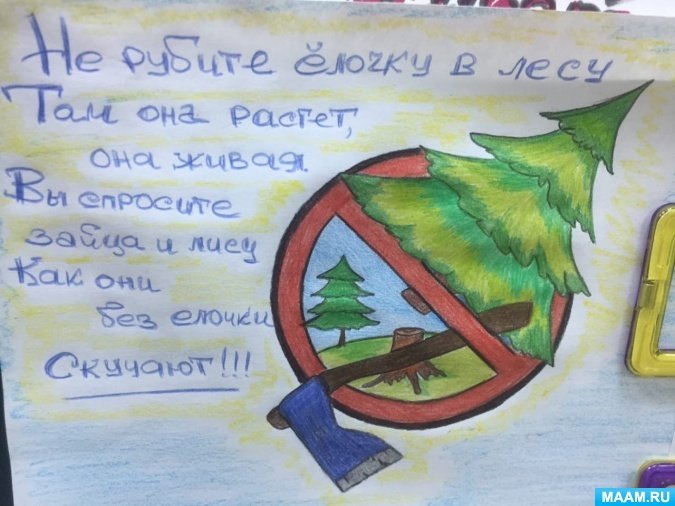 Не рубите ёлочку в лесу
Там она растет,
она живая.
Вы спросите
зайца и лису
Как они
без елочки
Скучают!!!
MAAM.RU